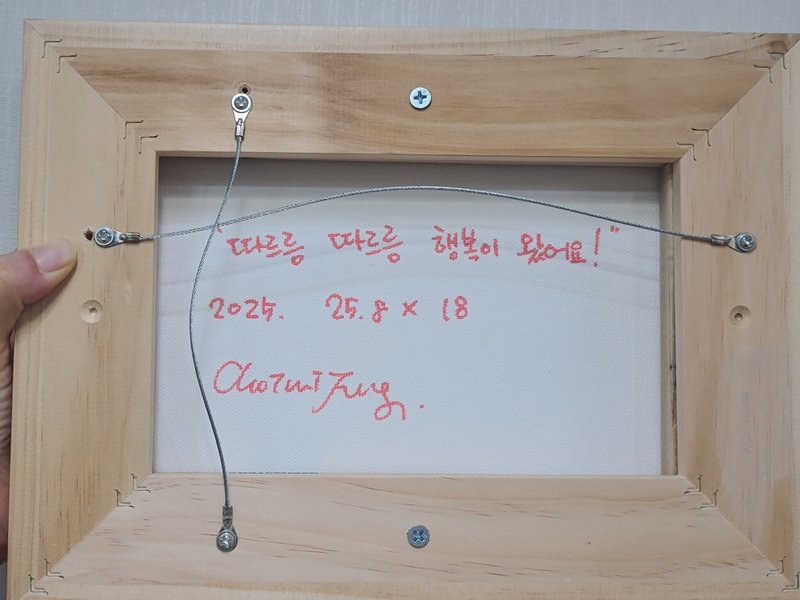 "따르릉 따르릉 행복이 왔어요!"
2025. 25.8 × 18